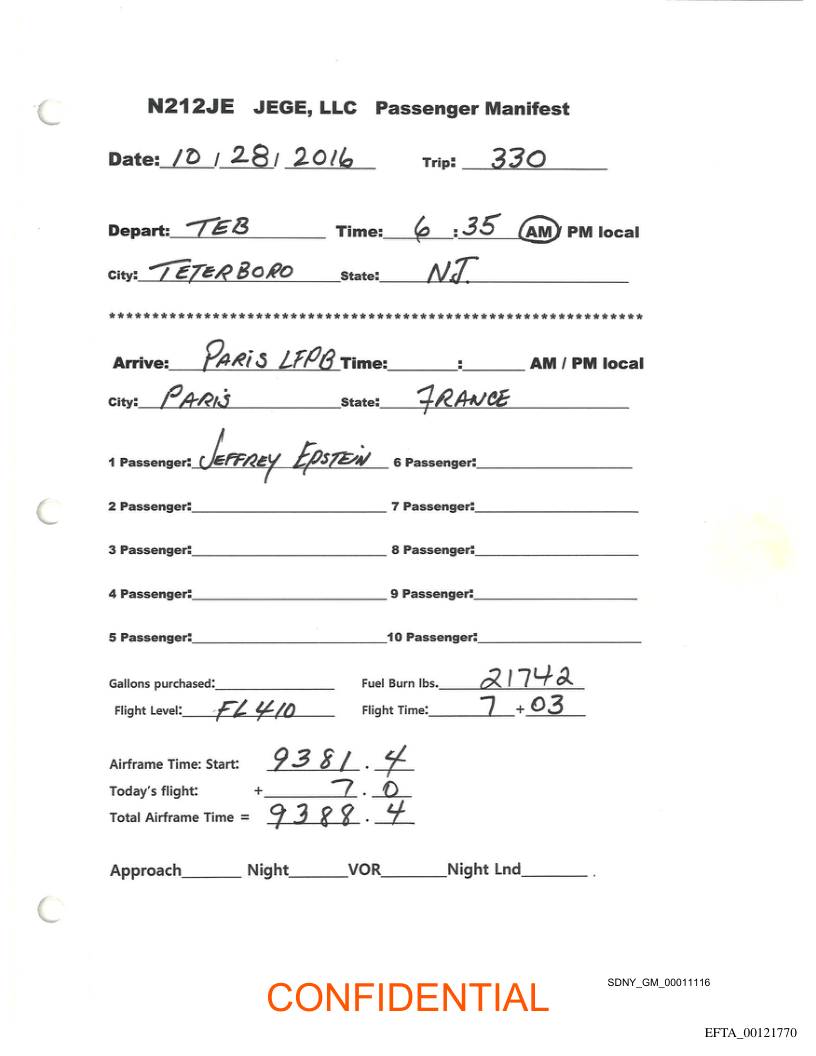 N212JE JEGE, LLC Passenger Manifest
Date: 10 / 28 / 2016 Trip: 330
Depart: TEB Time: 6 : 35 AM / PM local
City: TETERBORO State: N.J.
*************************************************************
Arrive: PARIS LFPB Time:______:______ AM / PM local
City: PARIS State: FRANCE
1 Passenger: JEFFREY EPSTEIN 6 Passenger:
2 Passenger: 7 Passenger:
3 Passenger: 8 Passenger:
4 Passenger: 9 Passenger:
5 Passenger: 10 Passenger:
Gallons purchased: Fuel Burn lbs. 21742
Flight Level: FL 410 Flight Time: 7 + 03
Airframe Time: Start: 9381.4
Today's flight: + 7.0
Total Airframe Time = 9388.4
Approach______ Night______VOR______Night Lnd______.
SDNY_GM_00011116
CONFIDENTIAL
EFTA_00121770